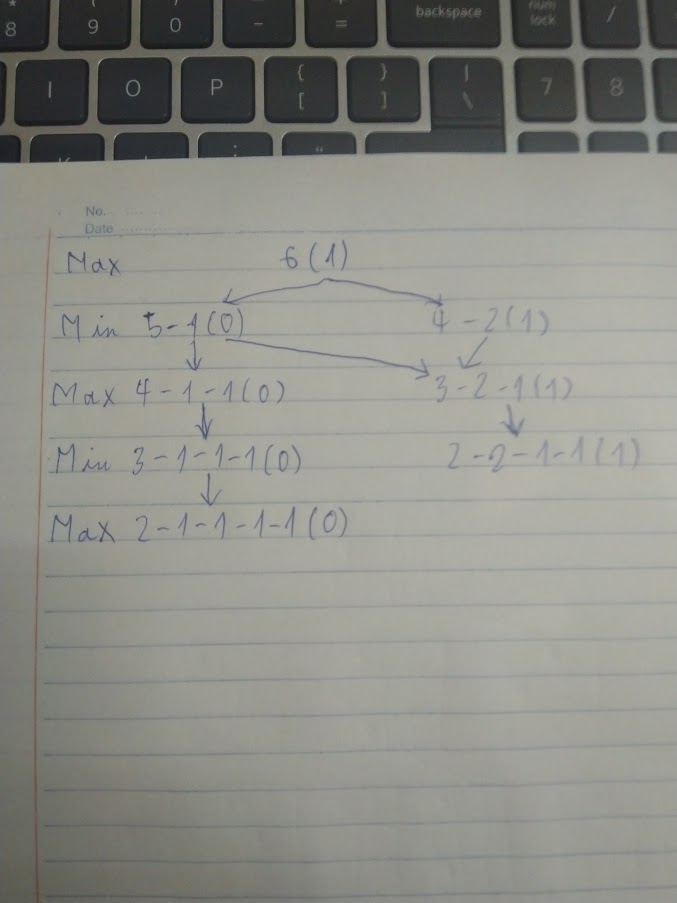 * 8
( 9
) 0
_ -
+ =
backspace
num lock
/
I
O
P
{ [
} ]
| \
7
8
No.
Date
Max 6(1)
Min 5-1(0) 4-2(1)
Max 4-1-1(0) 3-2-1(1)
Min 3-1-1-1(0) 2-2-1-1(1)
Max 2-1-1-1-1(0)